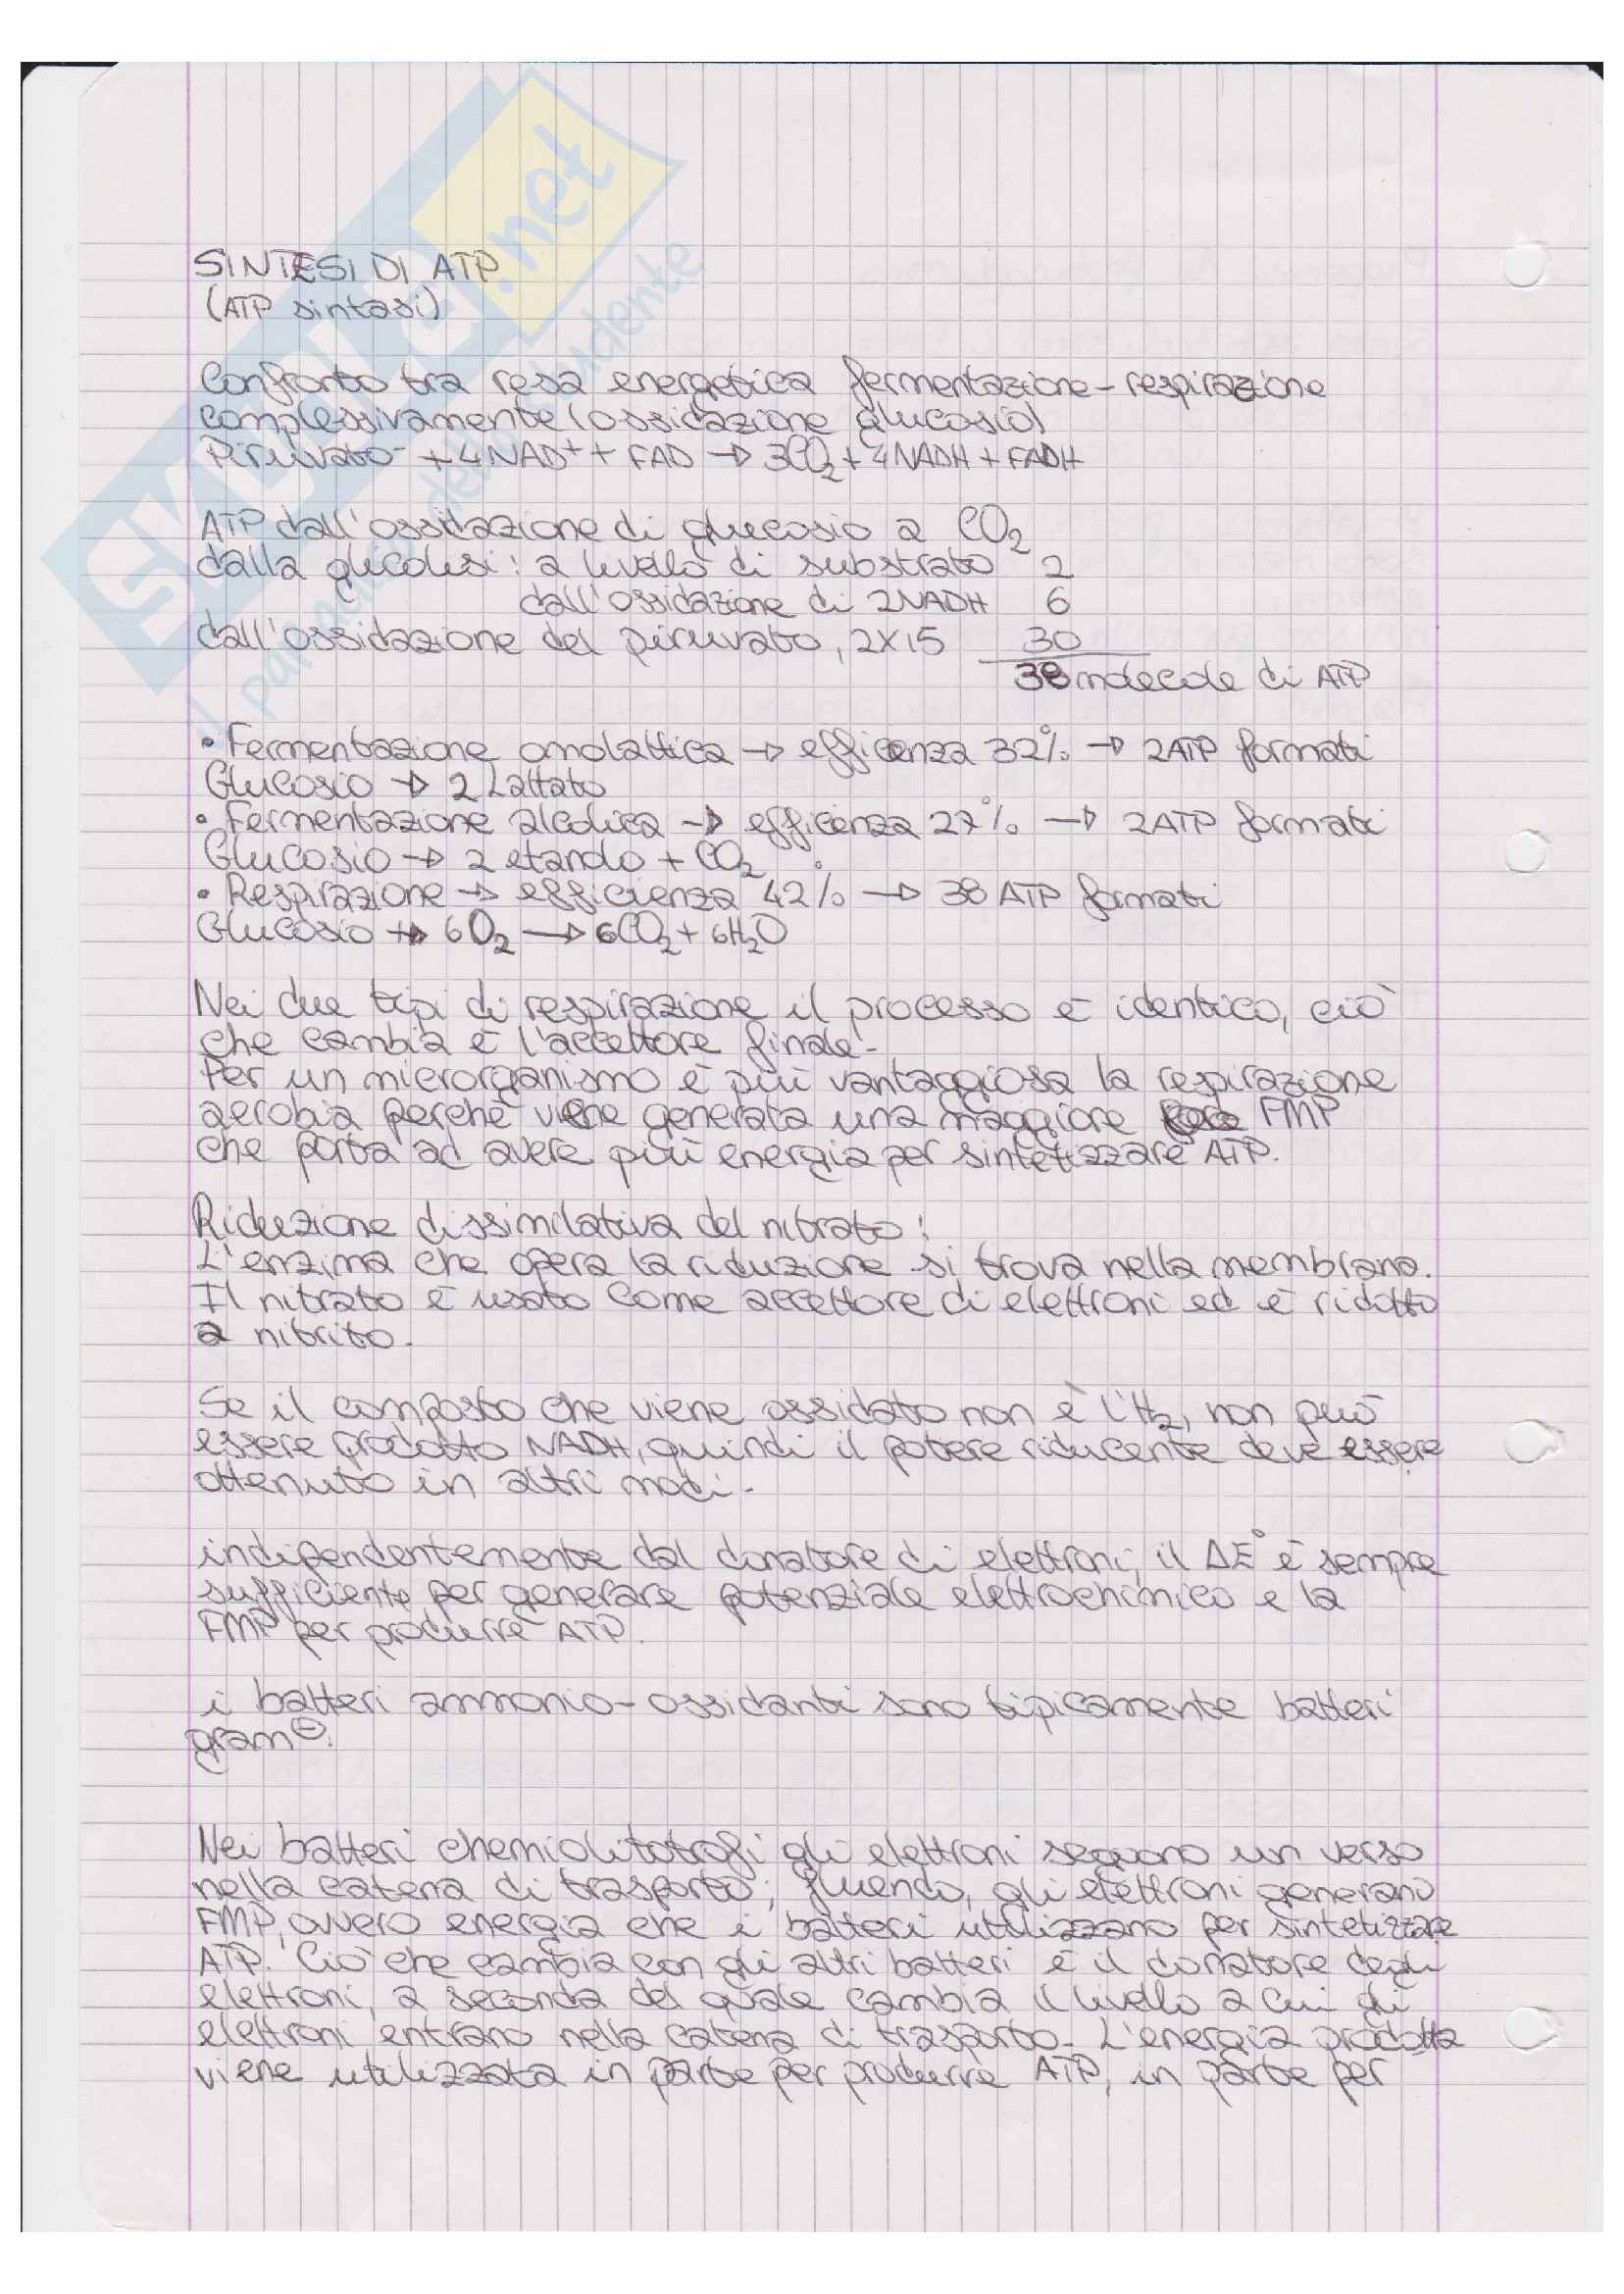 SINTESI DI ATP
(ATP sintasi)
Confronto tra resa energetica fermentazione - respirazione
complessivamente (ossidazione glucosio)
Piruvato⁻ + 4NAD⁺ + FAD → 3CO₂ + 4NADH + FADH
ATP dall'ossidazione di glucosio a CO₂
dalla glicolisi: a livello di substrato 2
dall'ossidazione di 2NADH 6
dall'ossidazione del piruvato, 2x15 30
38 molecole di ATP
• Fermentazione omolattica → efficenza 32% → 2ATP formati
Glucosio → 2 Lattato
• Fermentazione alcolica → efficenza 27% → 2ATP formati
Glucosio → 2 etanolo + CO₂
• Respirazione → efficienza 42% → 38 ATP formati
Glucosio + 6O₂ → 6CO₂ + 6H₂O
Nei due tipi di respirazione il processo è identico, ciò
che cambia è l'accettore finale.
Per un microrganismo è più vantaggiosa la respirazione
aerobia perchè viene generata una maggiore FMP
che porta ad avere più energia per sintetizzare ATP.
Riduzione dissimilativa del nitrato:
L'enzima che opera la riduzione si trova nella membrana.
Il nitrato è usato come accettore di elettroni ed è ridotto
a nitrito.
Se il composto che viene ossidato non è l'H₂, non può
essere prodotto NADH, quindi il potere riducente deve essere
ottenuto in altri modi.
indipendentemente dal donatore di elettroni, il ΔE° è sempre
sufficiente per generare potenziale elettrochimico e la
FMP per produrre ATP.
i batteri ammonio-ossidanti sono tipicamente batteri
gram⊖.
Nei batteri chemiolitotrofi gli elettroni seguono un verso
nella catena di trasporto; fluendo, gli elettroni generano
FMP, ovvero energia che i batteri utilizzano per sintetizzare
ATP. Ciò che cambia con gli altri batteri è il donatore degli
elettroni, a seconda del quale cambia il livello a cui gli
elettroni entrano nella catena di trasporto. L'energia prodotta
viene utilizzata in parte per produrre ATP, in parte per